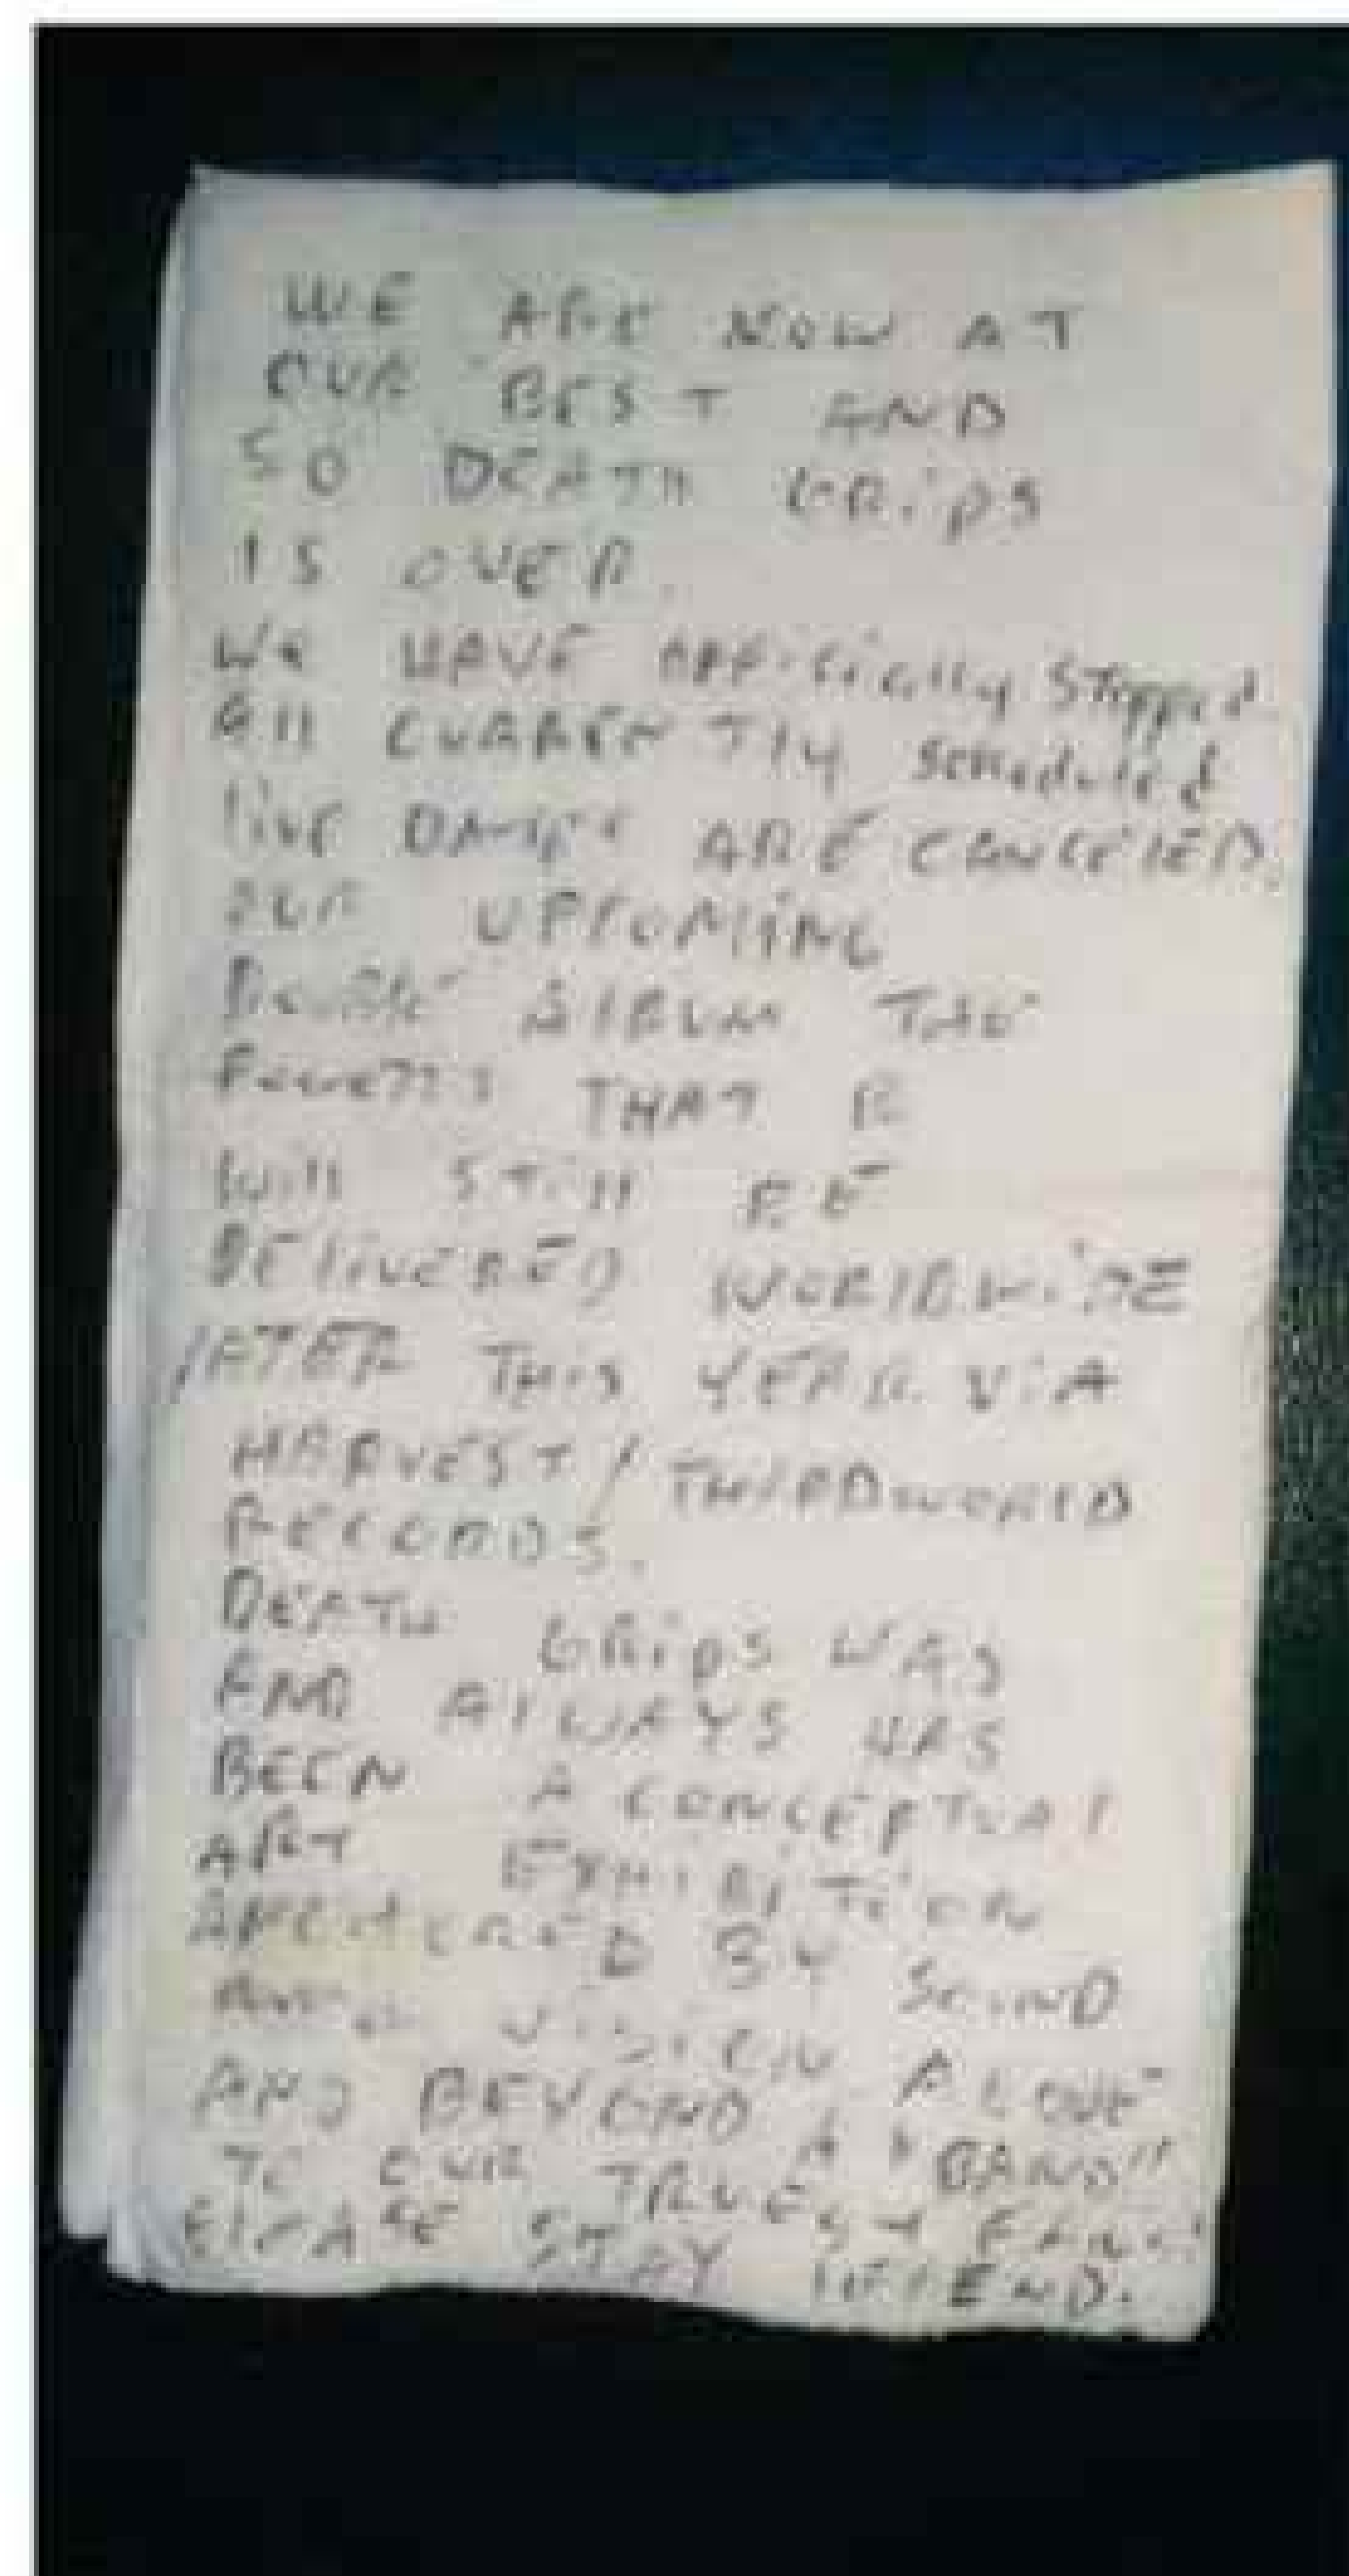 WE ARE NOW AT
OUR BEST AND
SO DEATH GRiPS
IS OVER.
We HAVE officially Stopped.
All CURRENTly Scheduled
live DATES ARE CANCElED.
OUR UPCOMiNG
DOUBLE AlBUM THE
POWERS THAT B
Will STill BE
DElivERED WORlDWiDE
lATER THiS YEAR ViA
HARVEST / THiRDWORlD
RECORDS.
DEATH GRiPS WAS
AND AlWAYS HAS
BEEN A CONCEPTUAl
ART EXHiBiTiON
ANCHORED BY SOUND
AND ViSiON. ABOVE
AND BEYOND A "BAND"
TO OUR TRUEST FANS,
PlEASE STAY lEGEND.